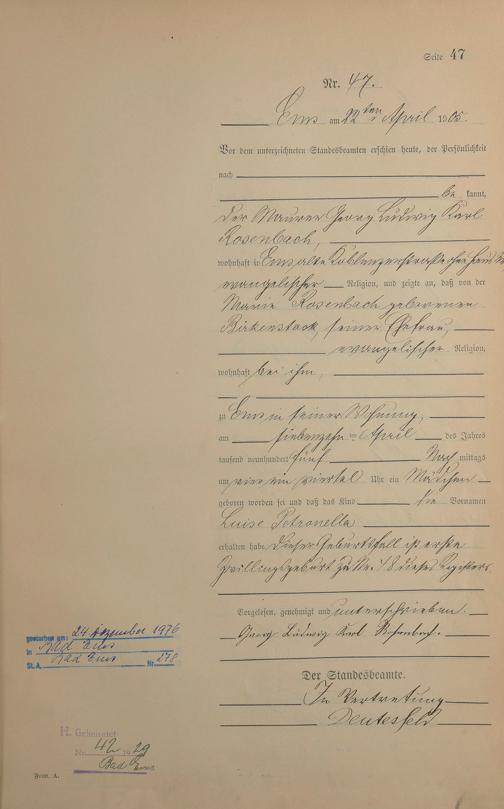 Seite 47
Nr. 47.
Ems am 22ten April 1905.
Vor dem unterzeichneten Standesbeamten erschien heute, der Persönlichkeit
nach
be kannt,
der Maurer Georg Ludwig Karl
Rosenbach,
wohnhaft in Ems, alte Koblenzerstraße
evangelischer Religion, und zeigte an, daß von der
Marie Rosenbach geborenen
Birkenstock, seiner Ehefrau,
evangelischer Religion,
wohnhaft bei ihm,
zu Ems in seiner Wohnung,
am siebenzehnten April des Jahres
tausend neunhundert fünf Nach mittags
um ein viertel Uhr ein Mädchen
geboren worden sei und daß das Kind die Vornamen
Luise Petronella
erhalten habe. Dieser Geburtsfall ist erste
Zwillingsgeburt zu Nr. 48 dieses Registers
Vorgelesen, genehmigt und unterschrieben.
Georg Ludwig Karl Rosenbach.
Der Standesbeamte.
In Vertretung
gestorben am: 24 Dezember 1976
in Bad Ems
St. A. Bad Ems Nr. 278
H. Geheiratet
Nr. 42 1929
Bad Ems
Form. A.